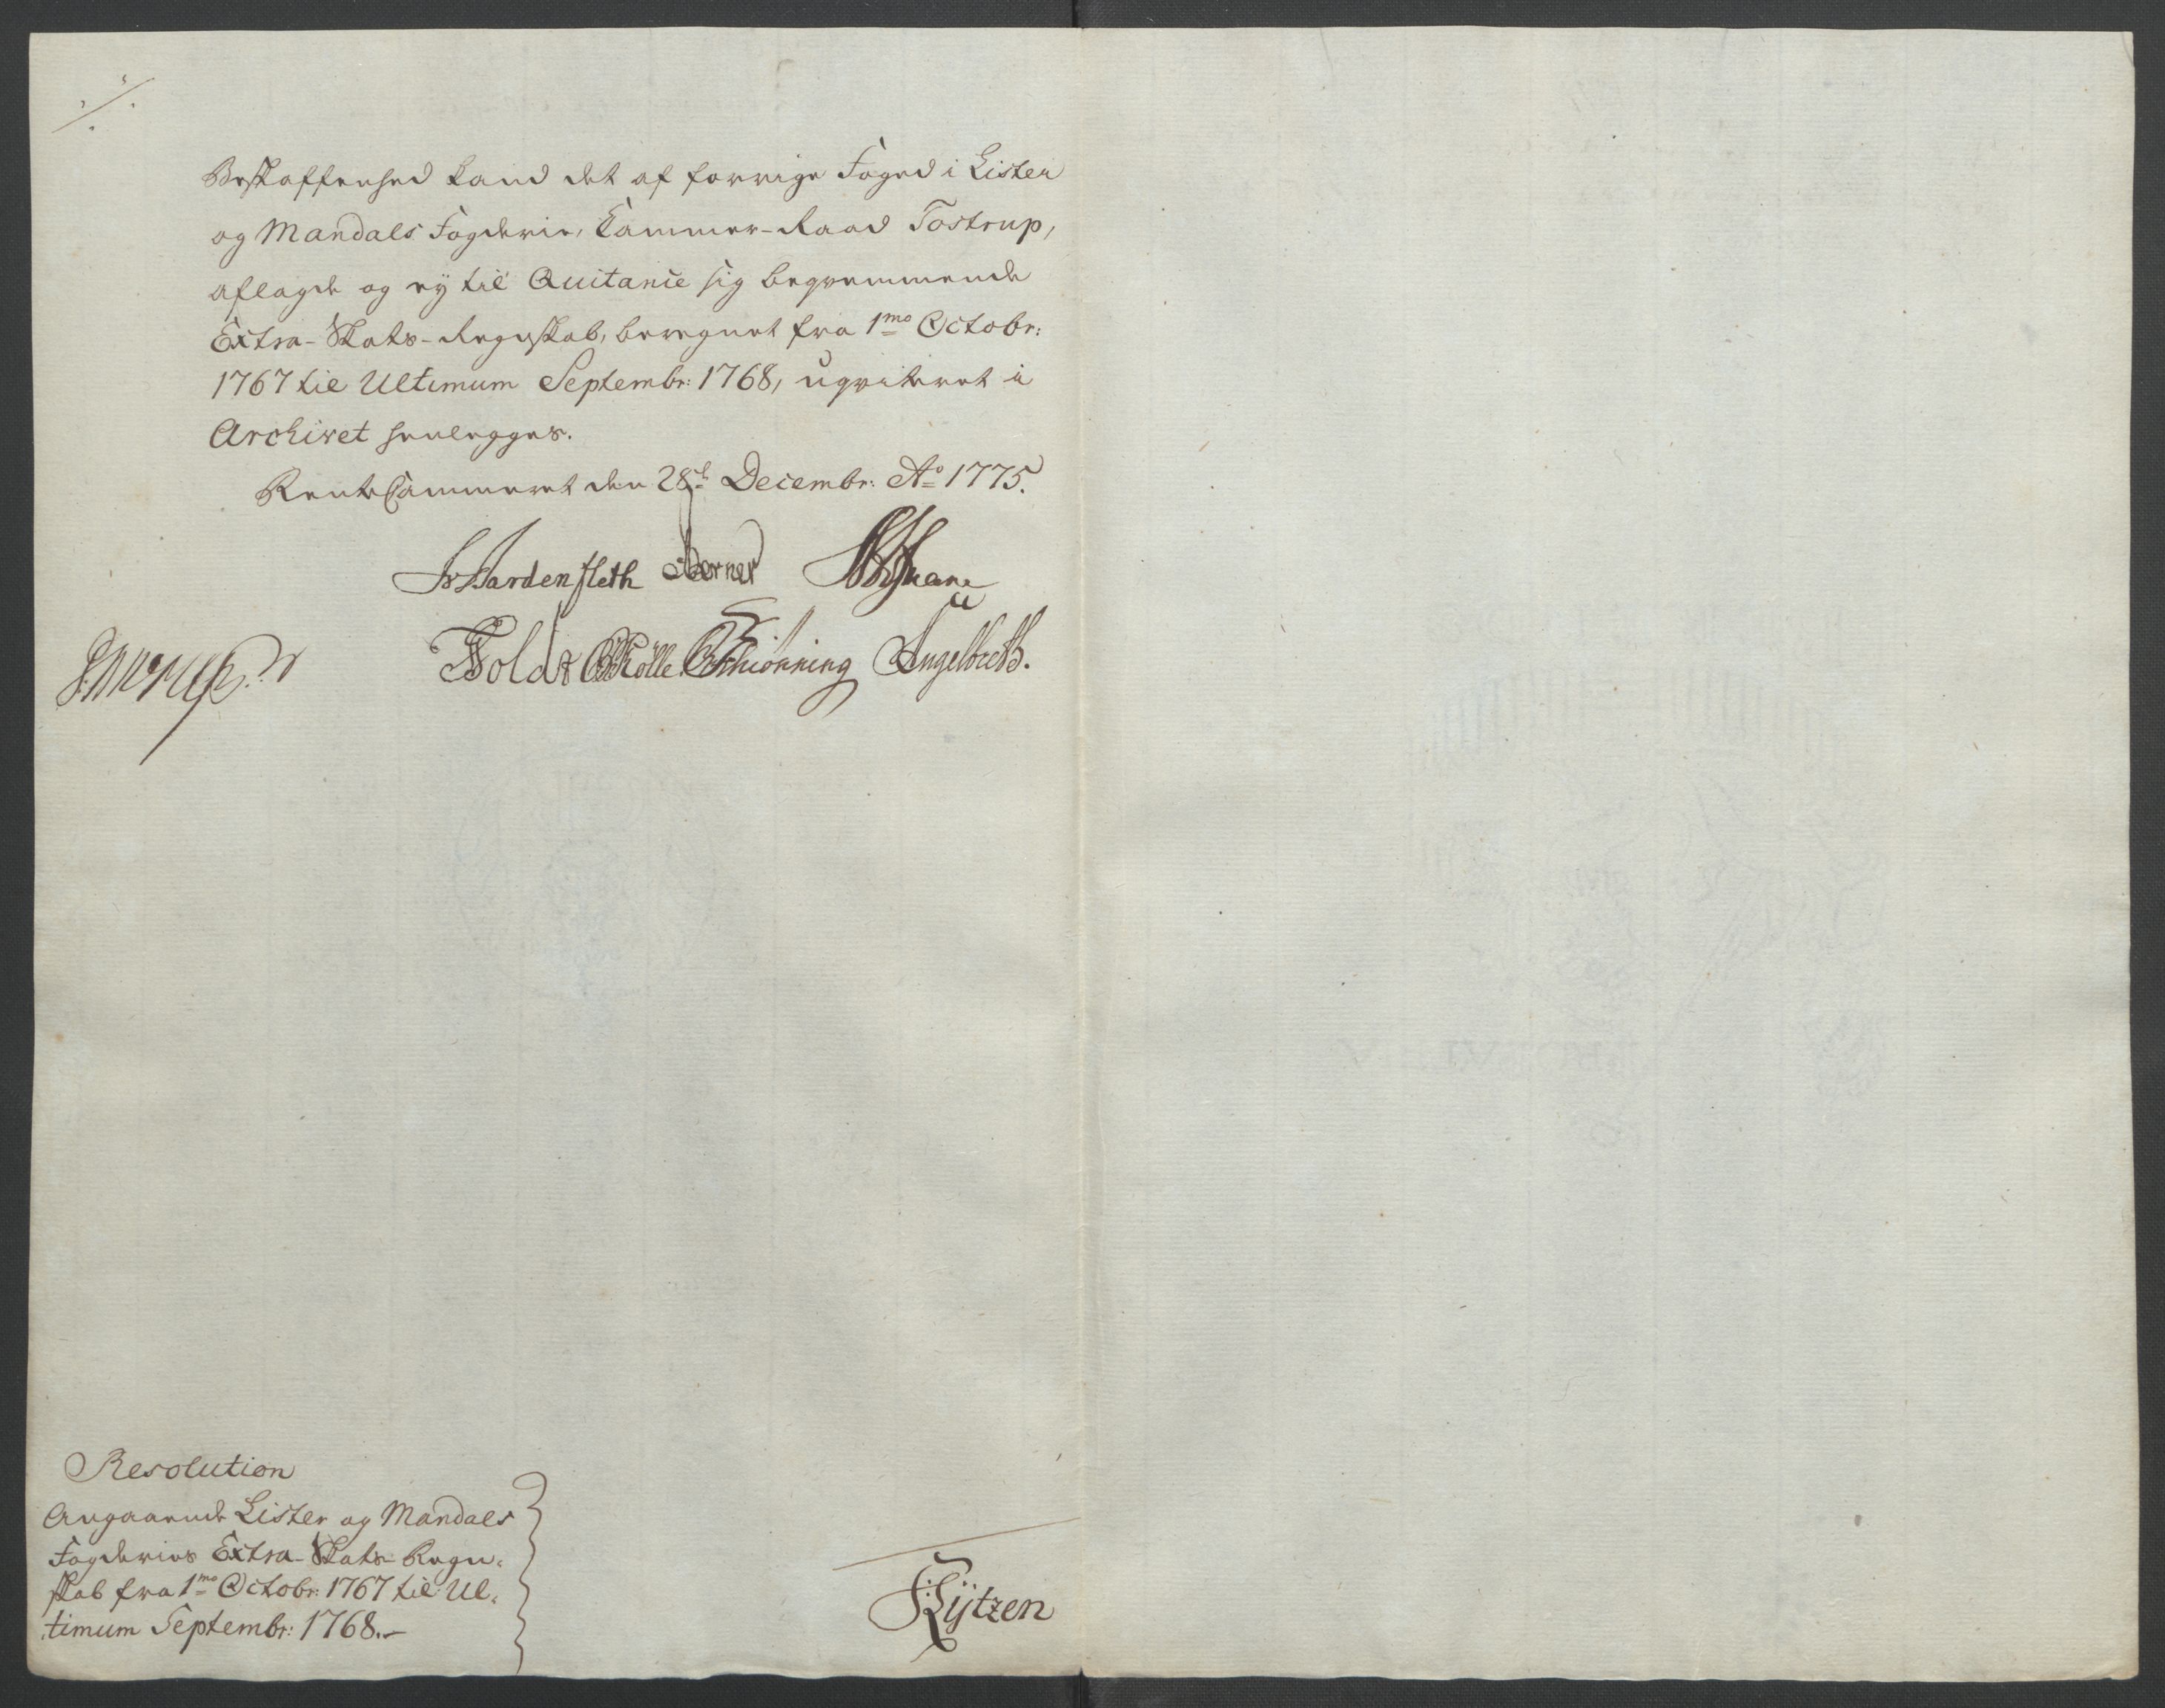 Beskaffenhed kand det af forrige Foged i Lister
og Mandals Fogderie, Cammer-Raad Tostrup,
aflagde og ey til Quitanie sig beqvemmende
Extra-Skats-Regnskab, beregnet fra 1mo Octobr:
1767 til Ultimum Septembr: 1768, uqviteret i
Archivet henlegges.
RenteCammeret den 28de Decembr: Ao 1775.
Hardenfleth Berner
Holdt Rölle Schiönning Engelbreth.
Resolution
Angaaende Lister og Mandals
Fogderies Extra-Skats-Regn-
skab fra 1mo Octobr: 1767 til Ul-
timum Septembr: 1768.-
Kÿtzen